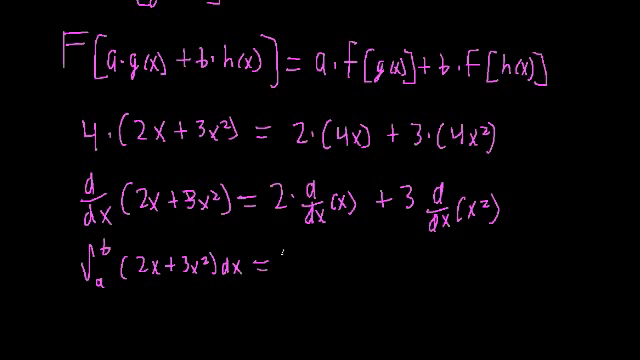 F[a·g(x) + b·h(x)] = a·F[g(x)] + b·F[h(x)]
4·(2x + 3x²) = 2·(4x) + 3·(4x²)
d/dx (2x + 3x²) = 2·d/dx (x) + 3 d/dx (x²)
∫ₐᵇ (2x + 3x²) dx =